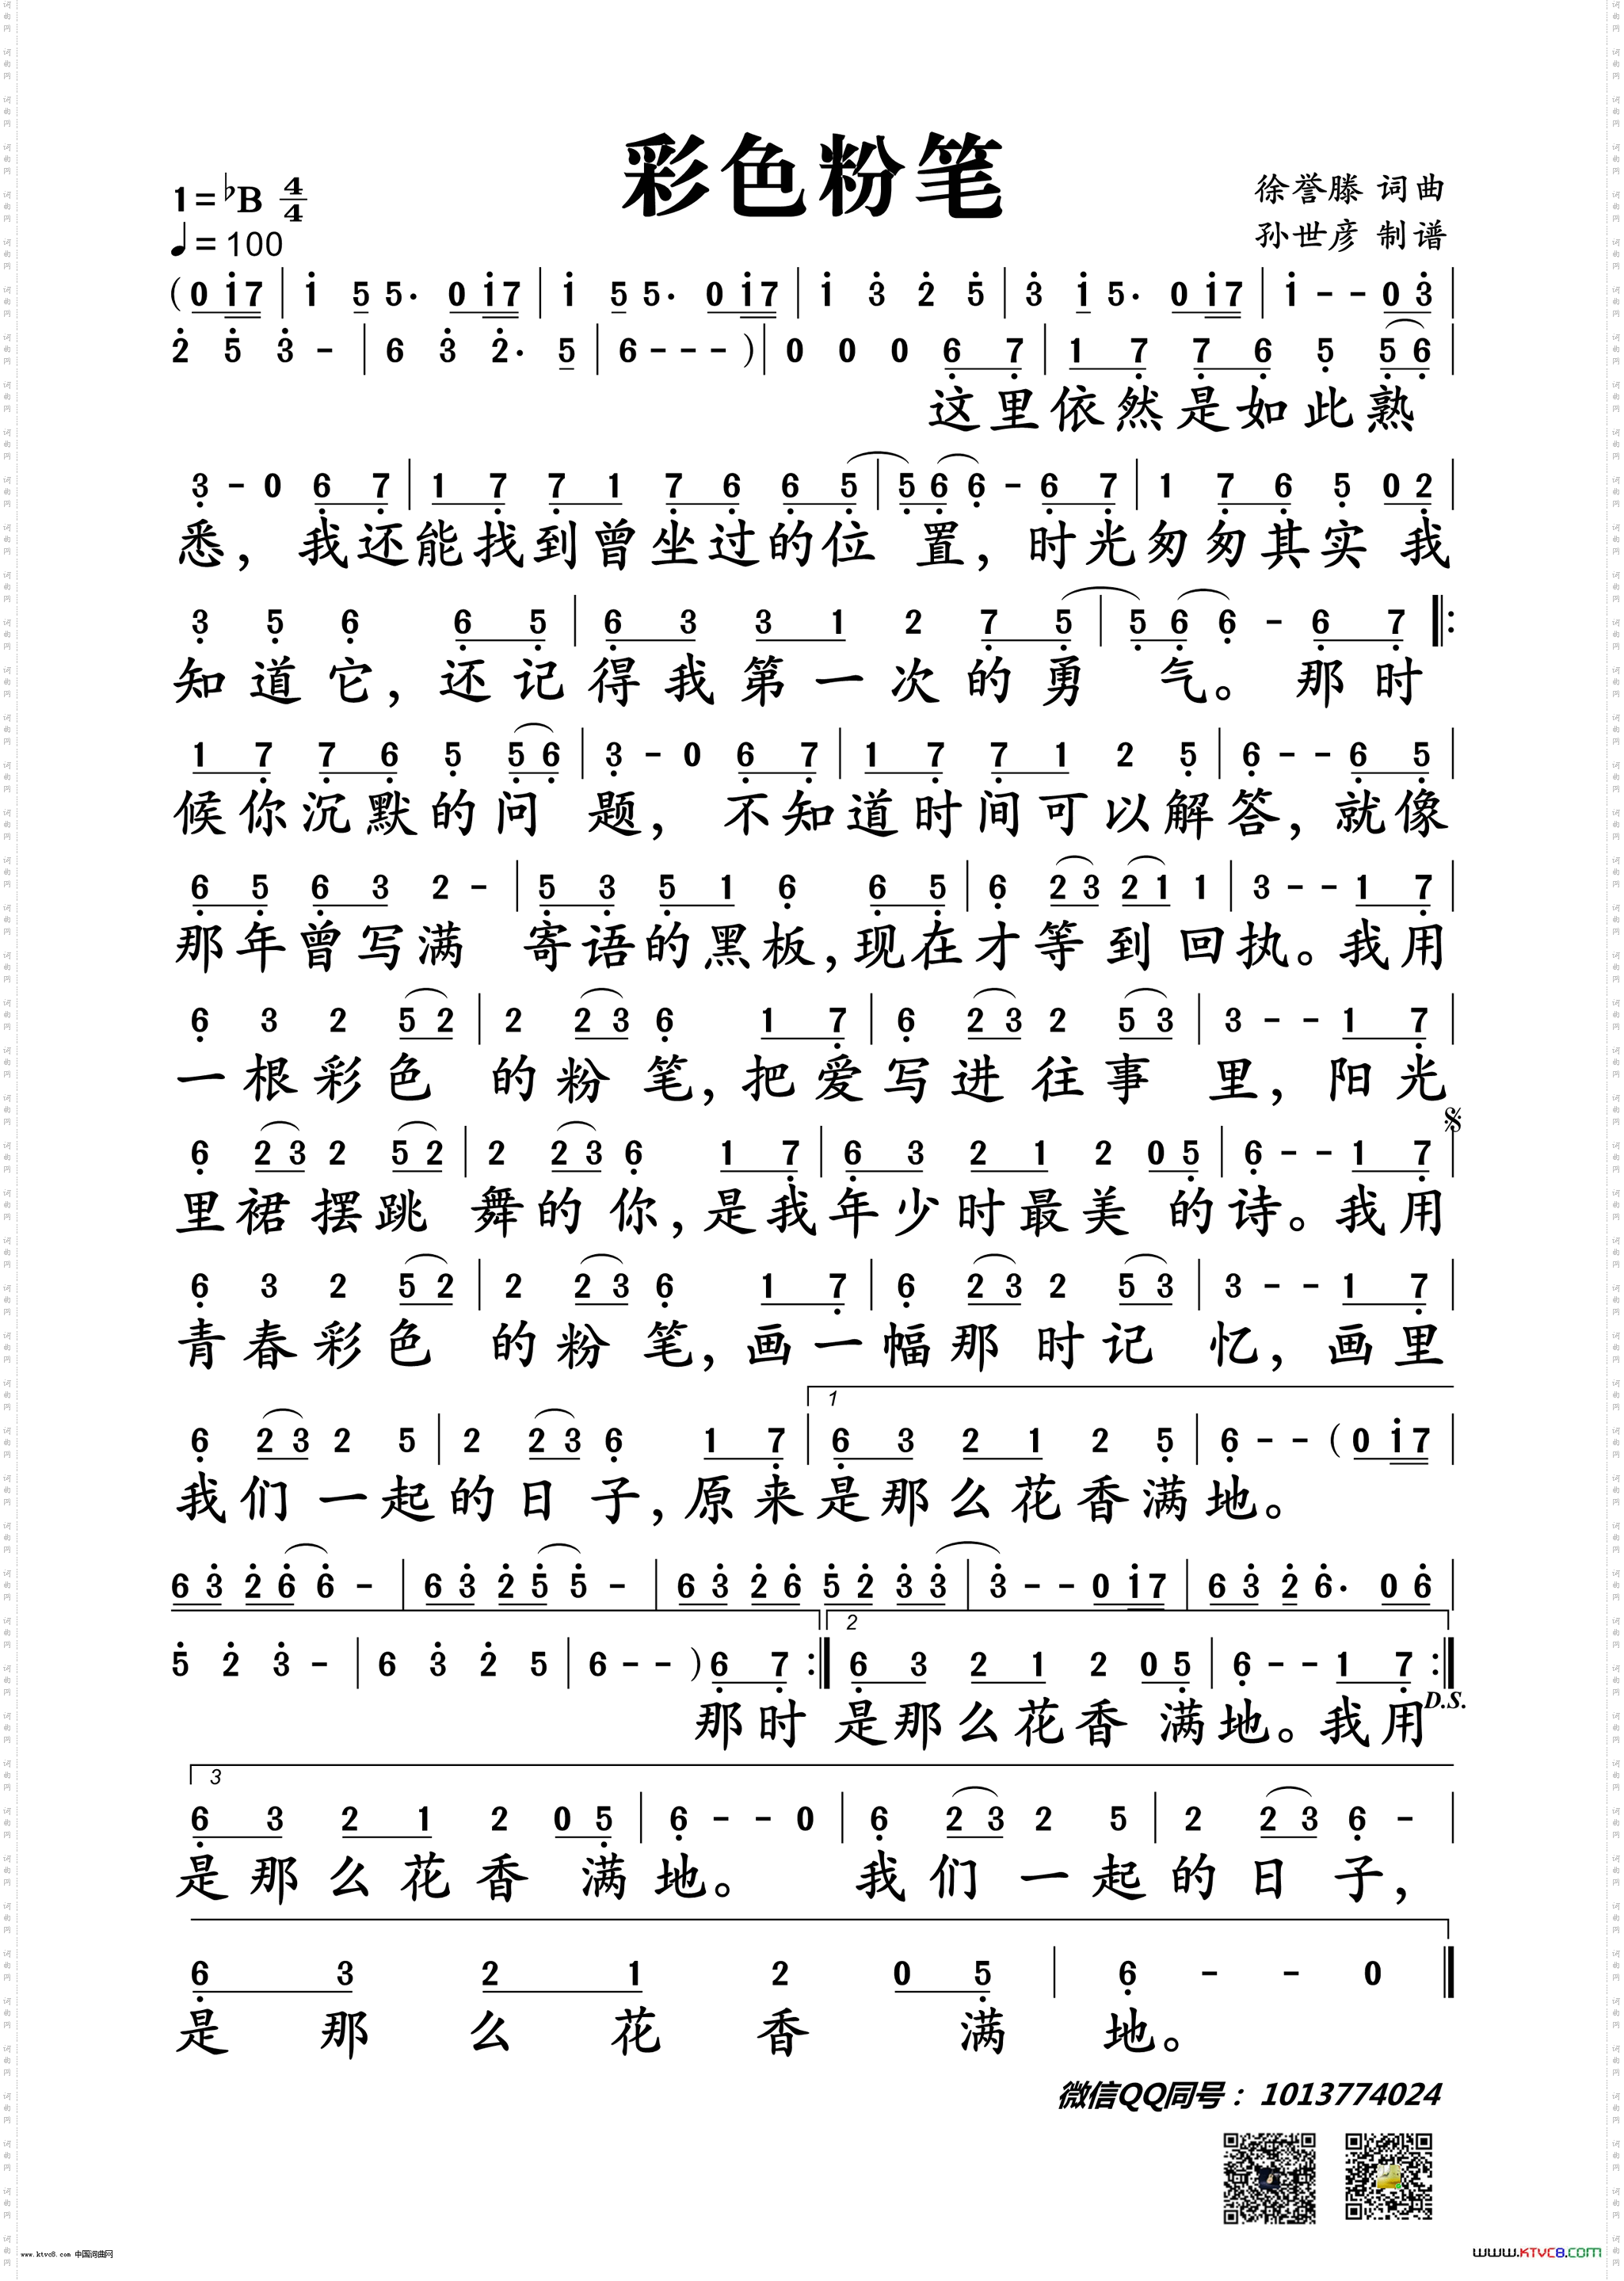 彩色粉笔
1=♭B 4/4
♩=100
徐誉滕 词曲
孙世彦 制谱
(0 i7 | i 5 5. 0 i7 | i 5 5. 0 i7 | i 3 2 5 | 3 i 5. 0 i7 | i - - 0 3 |
2 5 3 - | 6 3 2. 5 | 6 - - - ) | 0 0 0 6 7 | 1 7 7 6 5 5 6 |
这里依然是如此熟
3 - 0 6 7 | 1 7 7 1 7 6 6 5 | 5 6 6 - 6 7 | 1 7 6 5 0 2 |
悉，我还能找到曾坐过的位 置，时光匆匆其实 我
3 5 6 6 5 | 6 3 3 1 2 7 5 | 5 6 6 - 6 7 ‖:
知道它，还记得我第一次的勇 气。那时
1 7 7 6 5 5 6 | 3 - 0 6 7 | 1 7 7 1 2 5 | 6 - - 6 5 |
候你沉默的问 题，不知道时间可以解答，就像
6 5 6 3 2 - | 5 3 5 1 6 6 5 | 6 2 3 2 1 1 | 3 - - 1 7 |
那年曾写满 寄语的黑板，现在才等到回执。我用
6 3 2 5 2 | 2 2 3 6 1 7 | 6 2 3 2 5 3 | 3 - - 1 7 |
一根彩色 的粉笔，把爱写进往事 里，阳光
6 2 3 2 5 2 | 2 2 3 6 1 7 | 6 3 2 1 2 0 5 | 6 - - 1 7 |
里裙摆跳 舞的你，是我年少时最美 的诗。我用
6 3 2 5 2 | 2 2 3 6 1 7 | 6 2 3 2 5 3 | 3 - - 1 7 |
青春彩色 的粉笔，画一幅那时记 忆，画里
1
6 2 3 2 5 | 2 2 3 6 1 7 | 6 3 2 1 2 5 | 6 - - (0 i7 |
我们一起的日子，原来是那么花香满地。
6 3 2 6 6 - | 6 3 2 5 5 - | 6 3 2 6 5 2 3 3 | 3 - - 0 i7 | 6 3 2 6. 0 6 |
2
5 2 3 - | 6 3 2 5 | 6 - - ) 6 7 :‖ 6 3 2 1 2 0 5 | 6 - - 1 7 :‖
D.S.
那时 是那么花香 满地。我用
3
6 3 2 1 2 0 5 | 6 - - 0 | 6 2 3 2 5 | 2 2 3 6 - |
是那么花香 满地。 我们一起的日子，
6 3 2 1 2 0 5 | 6 - - 0 ‖
是那么花香 满地。
微信QQ同号：1013774024
www.ktvc8.com 中国词曲网
www.KTVC8.COM